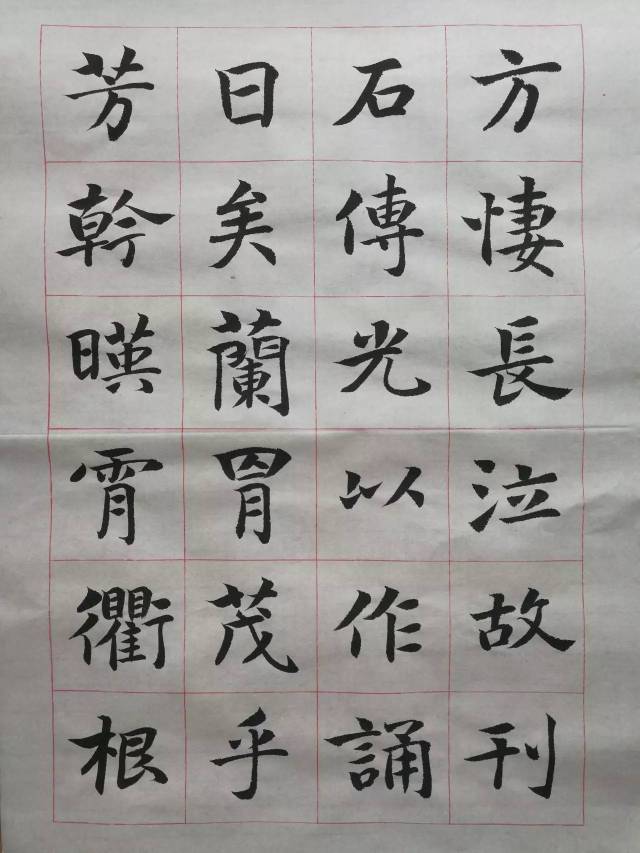 方悽長泣故刊
石傳光以作誦
曰矣蘭胄茂乎
芳幹暎霄衢根